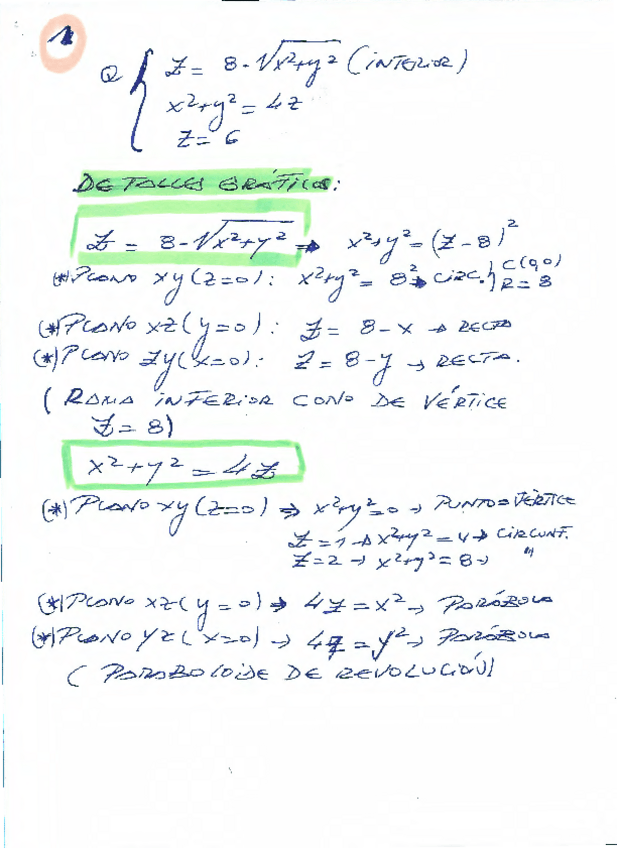 1
Q { Z = 8 - √x²+y² (INTERIOR)
x²+y² = 4z
Z = 6
DETALLES GRÁFICOS:
Z = 8-√x²+y² ⇒ x²+y² = (Z-8)²
(*) PLANO xy (z=0): x²+y² = 8² ⇒ CIRC. } C(0,0) R = 8
(*) PLANO xz (y=0): Z = 8-x → RECTA
(*) PLANO zy (x=0): Z = 8-y → RECTA.
( RAMA INFERIOR CONO DE VÉRTICE
Z = 8)
x²+y² = 4z
(*) PLANO xy (z=0) ⇒ x²+y²=0 → PUNTO=VÉRTICE
Z=1 → x²+y²=4 → CIRCUNF.
Z=2 → x²+y²=8 → "
(*) PLANO xz (y=0) ⇒ 4z = x² → PARÁBOLA
(*) PLANO yz (x=0) → 4z = y² → PARÁBOLA
( PARABOLOIDE DE REVOLUCIÓN)